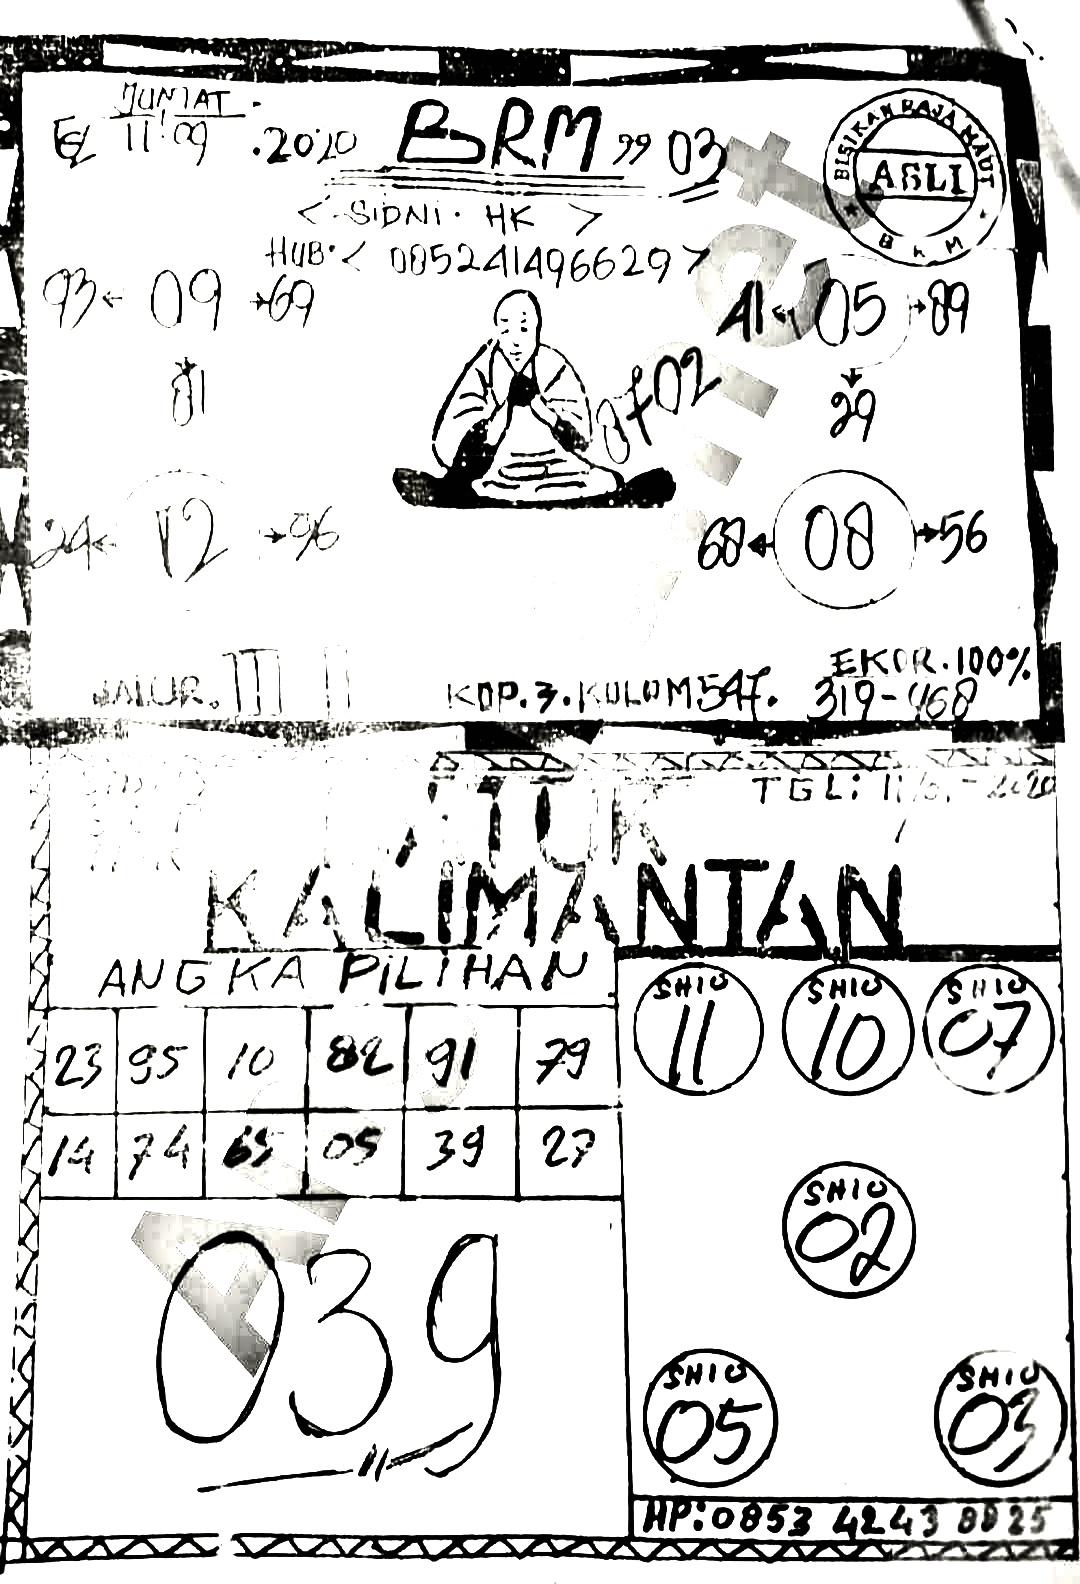 JUMAT
11-09.2020 BRM 99 03
BISIKAN RAJA MAUT
ASLI
BRM
< SIDNI. HK >
HUB: < 085241496629 >
93 ← 09 → 69
81
41 ← 05 → 89
29
07+02
24 ← 12 → 96
68 ← 08 → 56
EKOR.100%
JALUR. III II
KOP.3.KOLOM 547. 319-468
TGL: 11 2020
KALIMANTAN
ANGKA PILIHAN
23 95 10 82 91 79
14 74 65 05 39 27
039
SHIO 11
SHIO 10
SHIO 07
SHIO 02
SHIO 05
SHIO 03
HP:0853 4243 8025